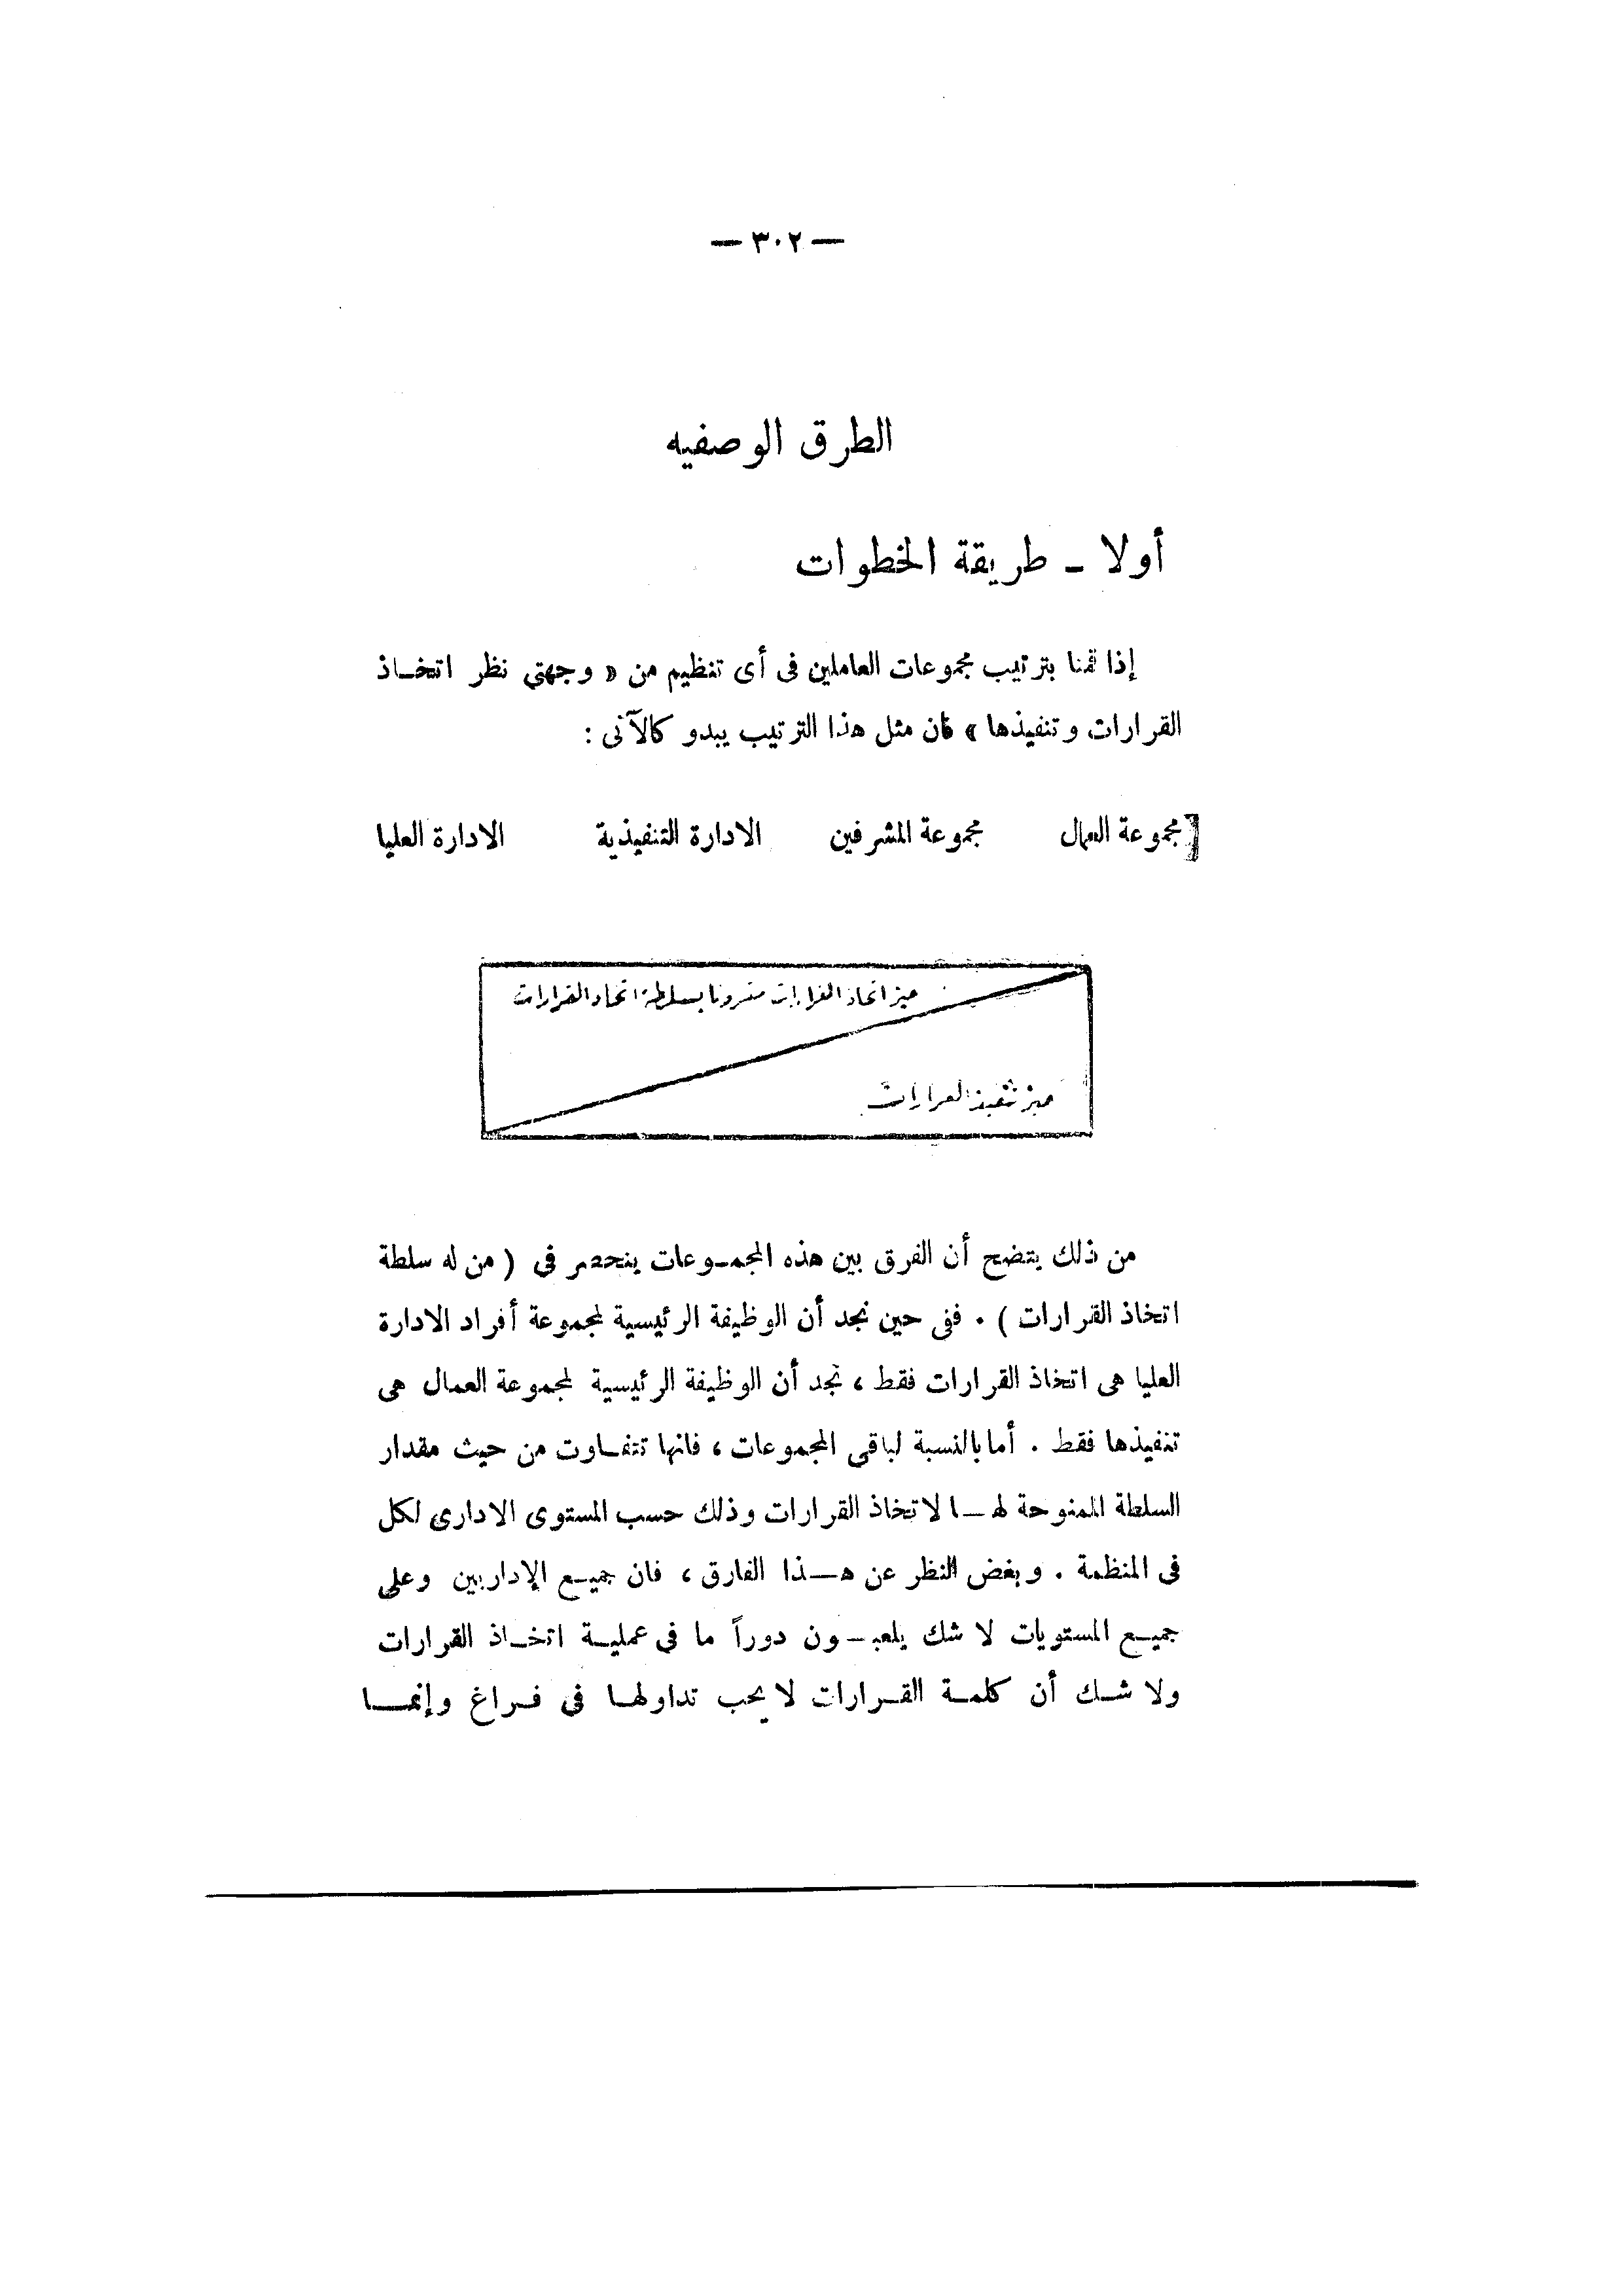 — ٣٠٢ —
الطرق الوصفيه
أولا - طريقة الخطوات
إذا قمنا بترتيب مجموعات العاملين فى أى تنظيم من « وجهتى نظر اتخـاذ
القرارات وتنفيذها » فان مثل هذا الترتيب يبدو كالآتى :
مجموعة العمال مجموعة المشرفين الادارة التنفيذية الادارة العليا
حيز اتخاذ القرارات مقرونا بسلطة اتخاذ القرارات
حيز تنفيذ القرارات
من ذلك يتضح أن الفرق بين هذه المجمـوعات ينحصر فى ( من له سلطة
اتخاذ القرارات ) . ففى حين نجد أن الوظيفة الرئيسية لمجموعة أفراد الادارة
العليا هى اتخاذ القرارات فقط ، نجد أن الوظيفة الرئيسية لمجموعة العمال هى
تنفيذها فقط . أما بالنسبة لباقى المجموعات ، فانها تتفـاوت من حيث مقدار
السلطة الممنوحة لهـا لاتخاذ القرارات وذلك حسب المستوى الادارى لكل
فى المنظمة . وبغض النظر عن هـذا الفارق ، فان جميـع الإداريين وعلى
جميـع المستويات لا شك يلعبـون دوراً ما فى عمليـة اتخـاذ القرارات
ولا شـك أن كلمـة القـرارات لا يجب تداولهـا فى فـراغ وإنمـا